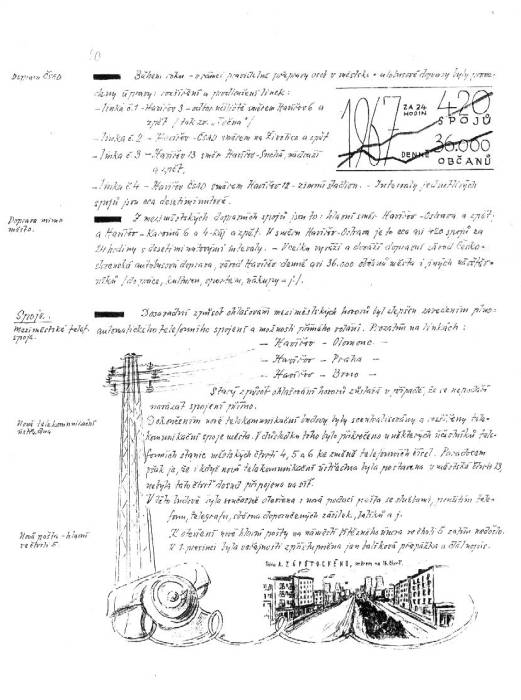 10
Doprava ČSAD
Během roku - v rámci pravidelné přepravy osob v městské - autobusové dopravy byly prove-
deny úpravy: rozšíření a prodloužení linek:
- linka č. 1 - Havířov 3 - směrem Havířov 6 a
zpět / tak zv. „Točna"/
- linka č. 2 - Havířov - ČSAD směrem na Životice a zpět
- linka č. 3 - Havířov 13 směr Havířov-Suchá, nádraží
a zpět.
- linka č. 4 - Havířov ČSAD směrem Havířov 12 - zimní stadion. - Intervaly jednotlivých
spojů jsou cca desetiminutové.
1967
ZA 24
HODIN
420
SPOJŮ
DENNĚ
36.000
OBČANŮ
Doprava mimo
město.
Z meziměstských dopravních spojů jsou to: hlavní směr Havířov-Ostrava a zpět;
a Havířov - Karviná 6 a 4 - kůj a zpět. V směru Havířov-Ostrava je to cca asi 420 spojů za
24 hodiny s desetiminutovými intervaly. - Počítá se
slovenská autobusová doprava, závod Havířov denně asi 36.000 občanů města i jiných návštěv-
níků /do práce, kulturu, sportem, nákupy - j./.
Spoje:
Meziměstské telef.
spoje.
Dosavadní způsob ohlašování meziměstských hovorů byl zlepšen zavedením plno-
automatického telefonního spojení a možností přímého volání. Prozatím na linkách:
- Havířov - Olomouc -
- Havířov - Praha -
- Havířov - Brno -
Starý způsob ohlašování hovorů zůstává v případě, že se nepodaří
navázat spojení přímo.
Nová telekomunikační
ústředna
Dokončením nové telekomunikační budovy byly scentralizovány a rozšířeny tele-
komunikační spoje města. V důsledku toho bylo překročeno u některých účastníků tele-
fonních stanic městských čtvrtí 4, 5 a 6 ke změně telefonních čísel. Paradoxem
však je, že i když nová telekomunikační ústředna byla postavena v městské čtvrti 13,
nebyla tato čtvrť dosud připojena na síť.
V této budově byla současně otevřena i nová podací pošta se službami, použitím tele-
fonu, telegrafu, sběrna doporučených zásilek, balíků a j.
Nová pošta - hlavní
ve čtvrti 5
K otevření nové hlavní pošty na náměstí Vítězného února ve čtvrti 5 zatím nedošlo.
V I. prosinci byla veřejnosti zpřístupněna jen balíková přepážka a dálnopis.
Třída A. ZÁPOTOCKÉHO, směrem na 13. čtvrť.